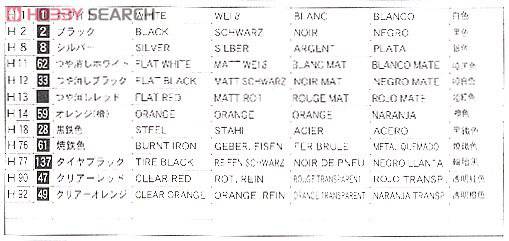 HOBBY SEARCH
1 1 WHITE WEIß BLANC BLANCO 白色
H 2 2 ブラック BLACK SCHWARZ NOIR NEGRO 黒色
H 8 8 シルバー SILVER SILBER ARGENT PLATA 銀色
H 11 62 つや消しホワイト FLAT WHITE MATT WEIß BLANC MAT BLANCO MATE
H 12 33 つや消しブラック FLAT BLACK MATT SCHWARZ NOIR MAT NEGRO MATE
H 13 つや消しレッド FLAT RED MATT ROT ROUGE MAT ROJO MATE
H 14 59 オレンジ(橙) ORANGE ORANGE ORANGE NARANJA 橙色
H 18 28 黒鉄色 STEEL STAHL ACIER ACERO 黒鉄色
H 76 61 焼鉄色 BURNT IRON GEBR. EISEN FER BRULE METAL QUEMADO 焼鉄色
H 77 137 タイヤブラック TIRE BLACK REIFEN SCHWARZ NOIR DE PNEU NEGRO LLANTA
H 90 47 クリアーレッド CLEAR RED ROT. REIN ROUGE TRANSPARENT ROJO TRANSP. 透明紅色
H 92 49 クリアーオレンジ CLEAR ORANGE ORANGE. REIN ORANGE TRANSPARENT NARANJA TRANSP. 透明橙色